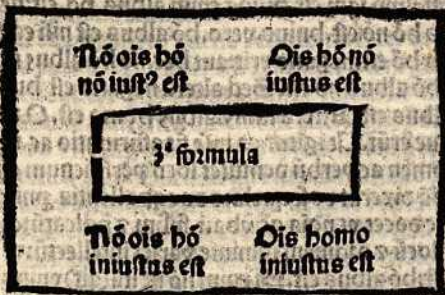 Nō oīs hō
nō iustꝰ est
Oīs hō nō
iustus est
3ª formula
Nō oīs hō
iniustus est
Oīs homo
iniustus est